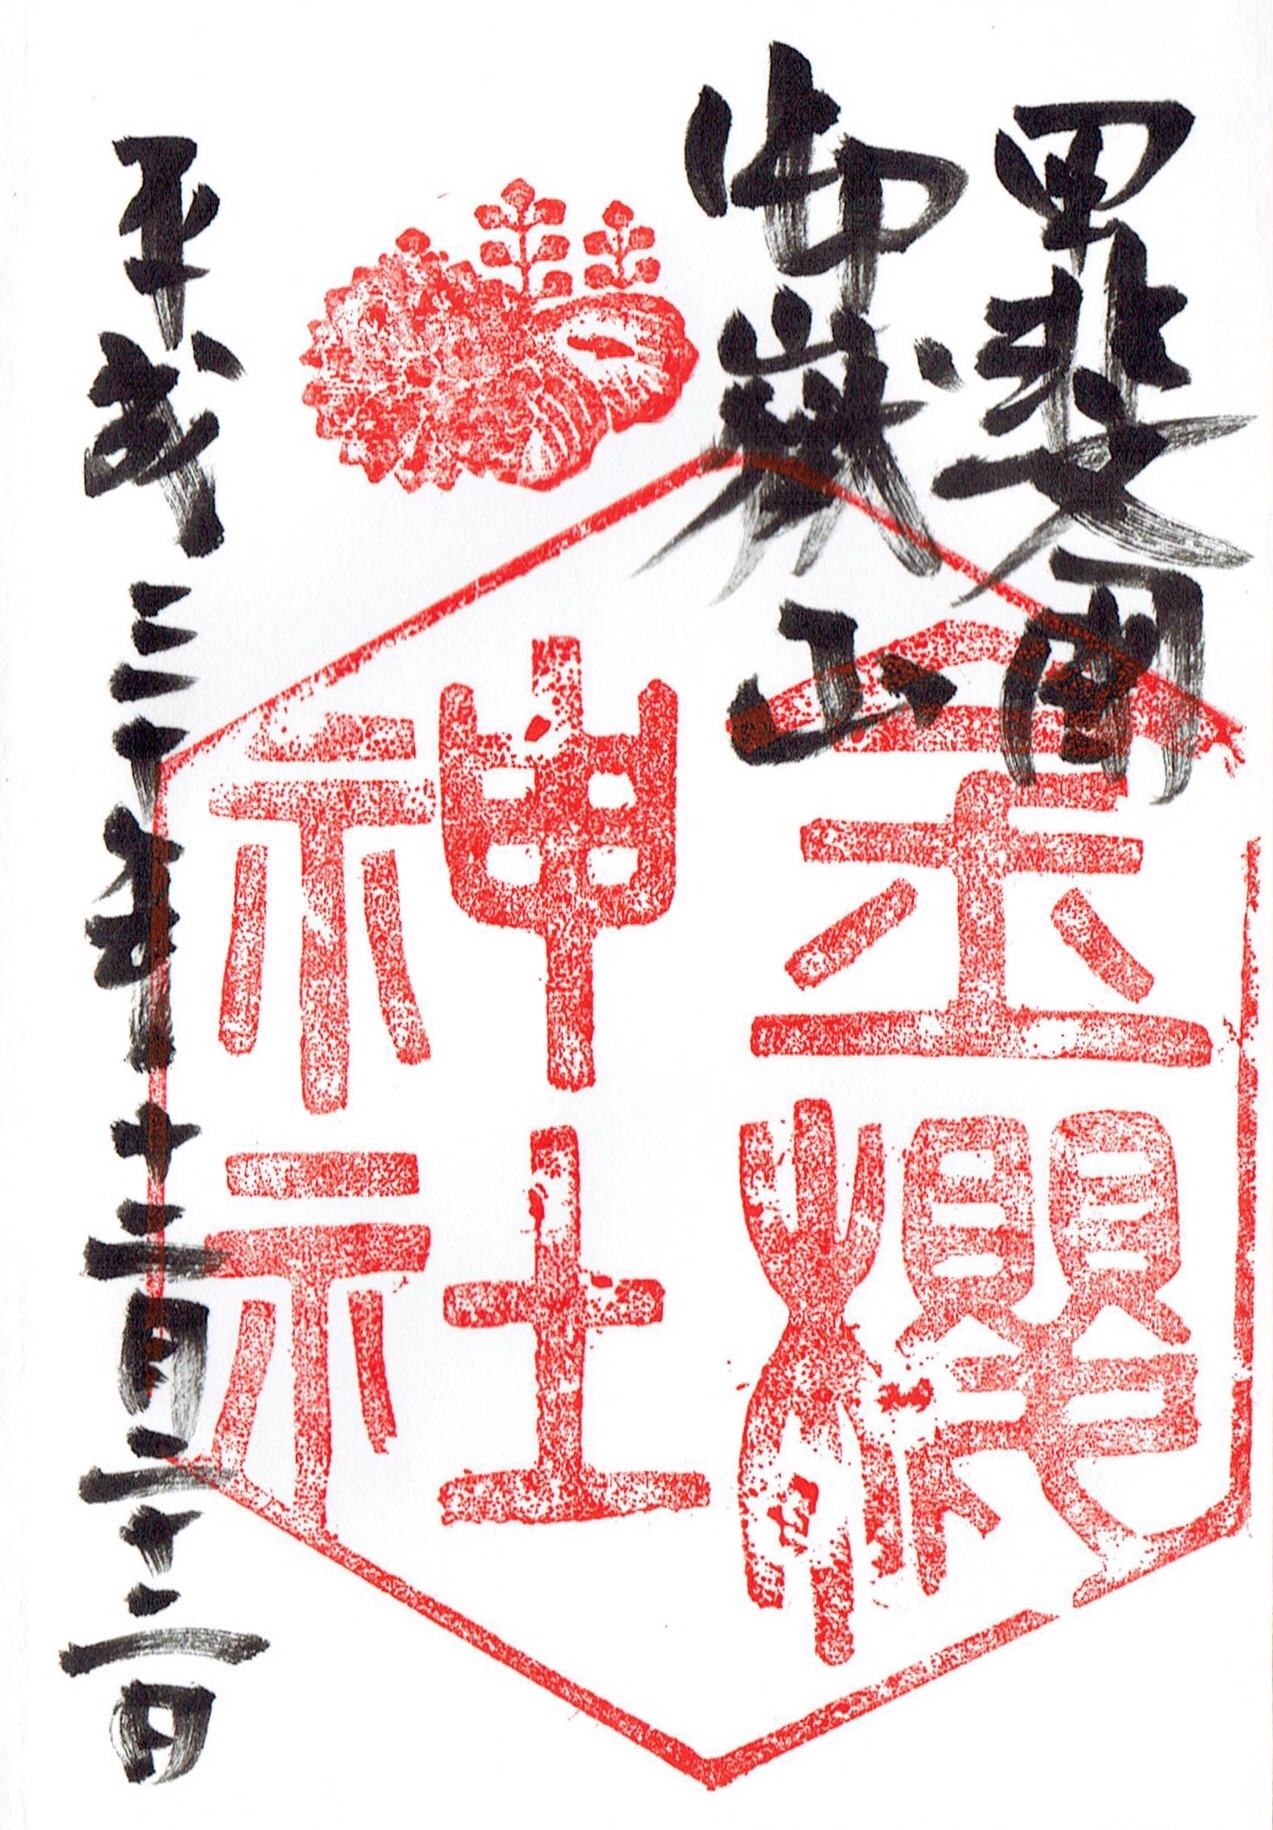 甲斐国
御嶽山
金櫻
神社
平成三十年十二月二十二日